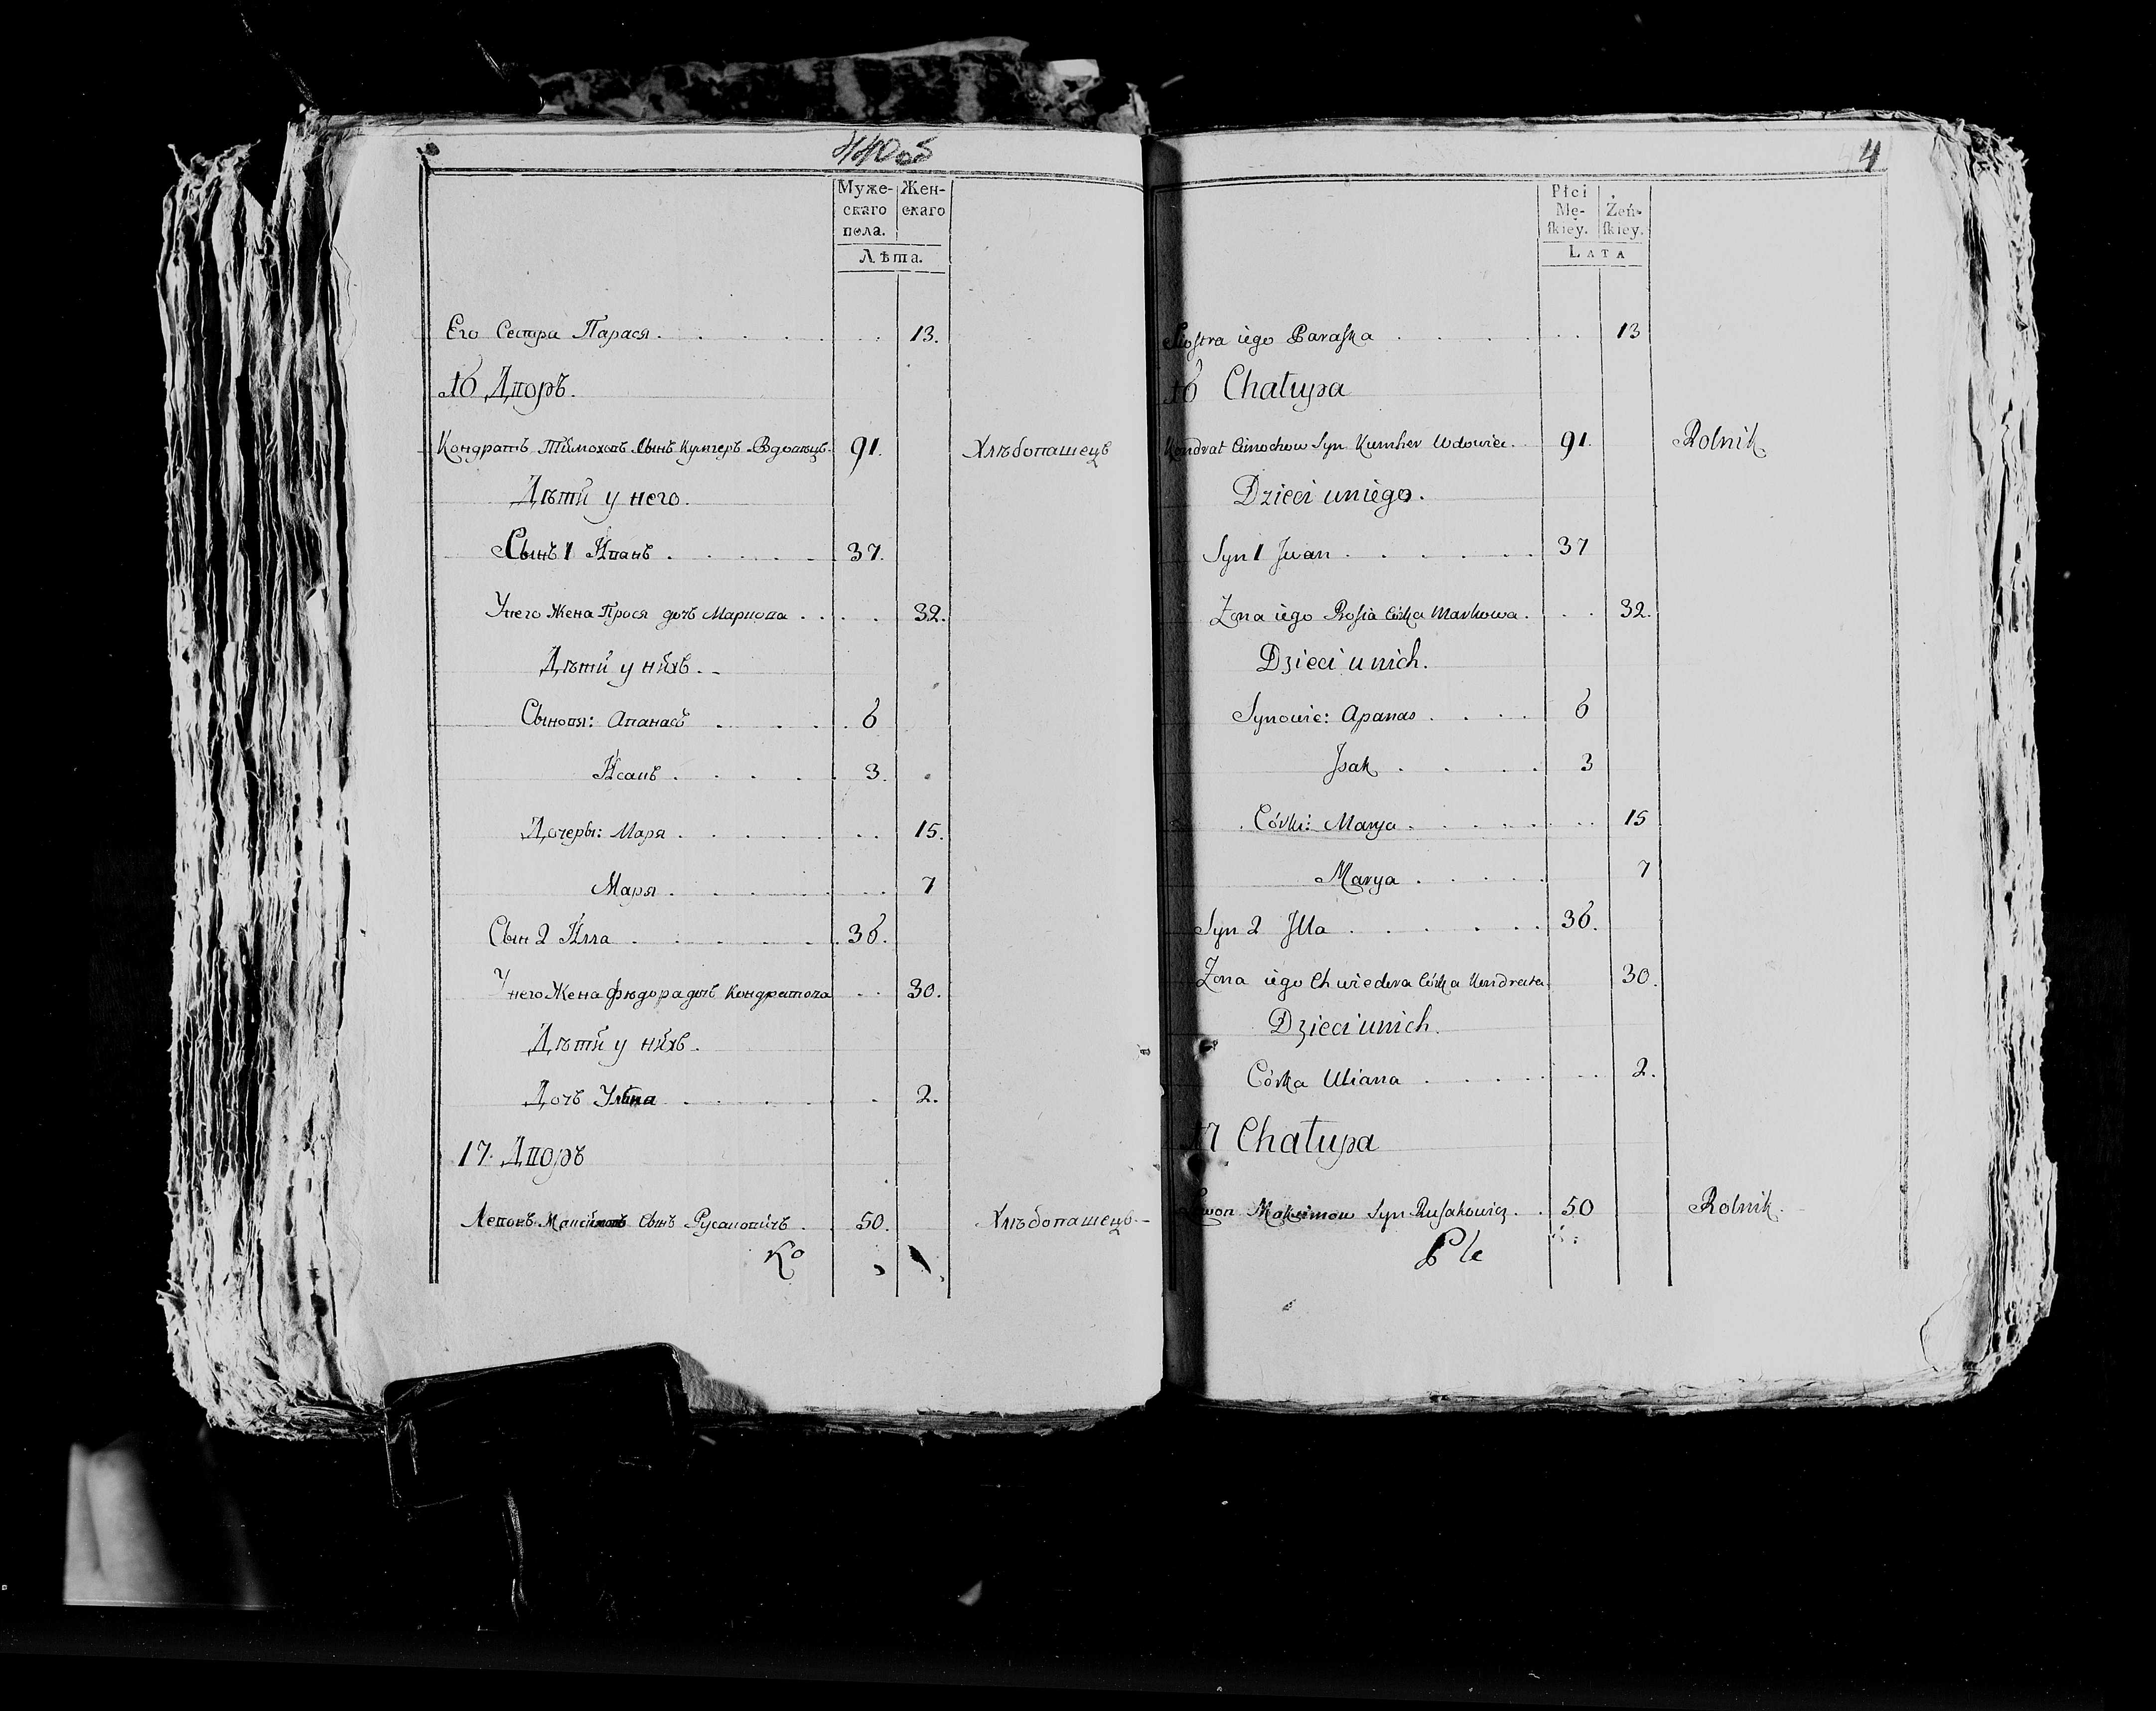 440об
Муже-
скаго
пола.
Жен-
скаго
Лѣта.
Его Сестра Парася . . . . . . 13.
16 Дворъ.
Кондратъ Тимоховъ Сынъ Кумгеръ Вдовецъ. 91. Хлѣбопашецъ
Дѣти у него.
Сынъ 1 Иванъ . . . . . 37.
У него Жена Прося дочь Маркова . . . . 32.
Дѣти у нихъ. -
Сыновя: Апанасъ . . . . 6
Исакъ . . . . . 3.
Дочеры: Маря . . . . . . . 15.
Маря . . . . . . . 7
Сын 2 Илла . . . . . . 36.
У него Жена Фюдора дочь Кондратова . . 30.
Дѣти у нихъ.
Дочь Уляна . . . . . . 2.
17. Дворъ
Левонъ Максимовъ Сынъ Русаковичъ . 50. Хлѣбопашецъ. -
Ко
4
Płci
Mę-
ſkiey.
Żeń-
ſkiey.
LATA
Siostra iego Paraſka . . . . . . 13
16 Chałupa
Kondrat Cimochow Syn Kumher Wdowiec. 91. Rolnik
Dzieci u niego.
Syn 1 Jwan . . . . . . 37
Zona iego Prosia Córka Markowa . . . 32.
Dzieci u nich.
Synowie: Apanas . . . . 6
Jsak . . . . 3
Córki: Marya . . . . . . . 15
Marya . . . . . 7
Syn 2 Jlla . . . . . . 36.
Zona iego Chwiedora Córka Kondrata 30.
Dzieci u nich.
Córka Uliana . . . . . . 2.
17 Chałupa
Lewon Maksimow Syn Ruſakowicz . . 50 Rolnik.